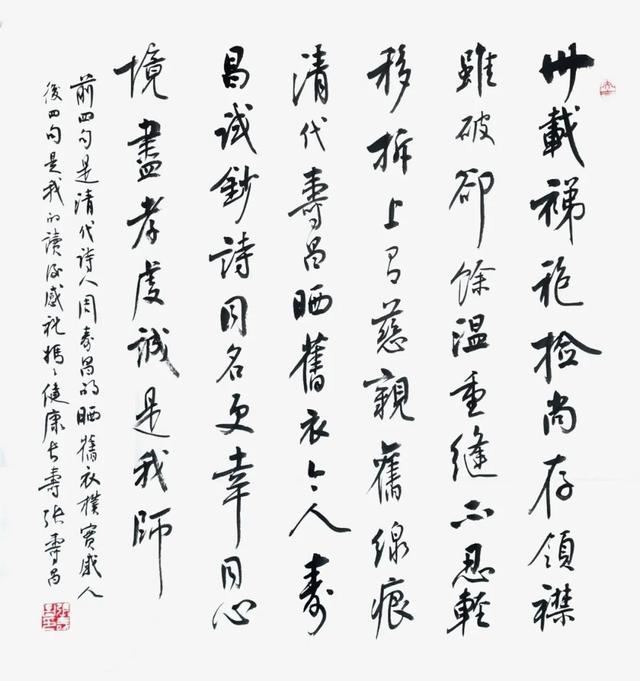 卅載綈袍检尚存領襟
雖破卻餘温重縫不忍輕
移拆上有慈親舊線痕
清代壽昌晒舊衣今人壽
昌試鈔詩同名更幸同心
境盡孝虔誠是我師
前四句是清代詩人周壽昌的晒舊衣樸實感人
後四句是我的讀後感祝媽〻健康長壽張壽昌